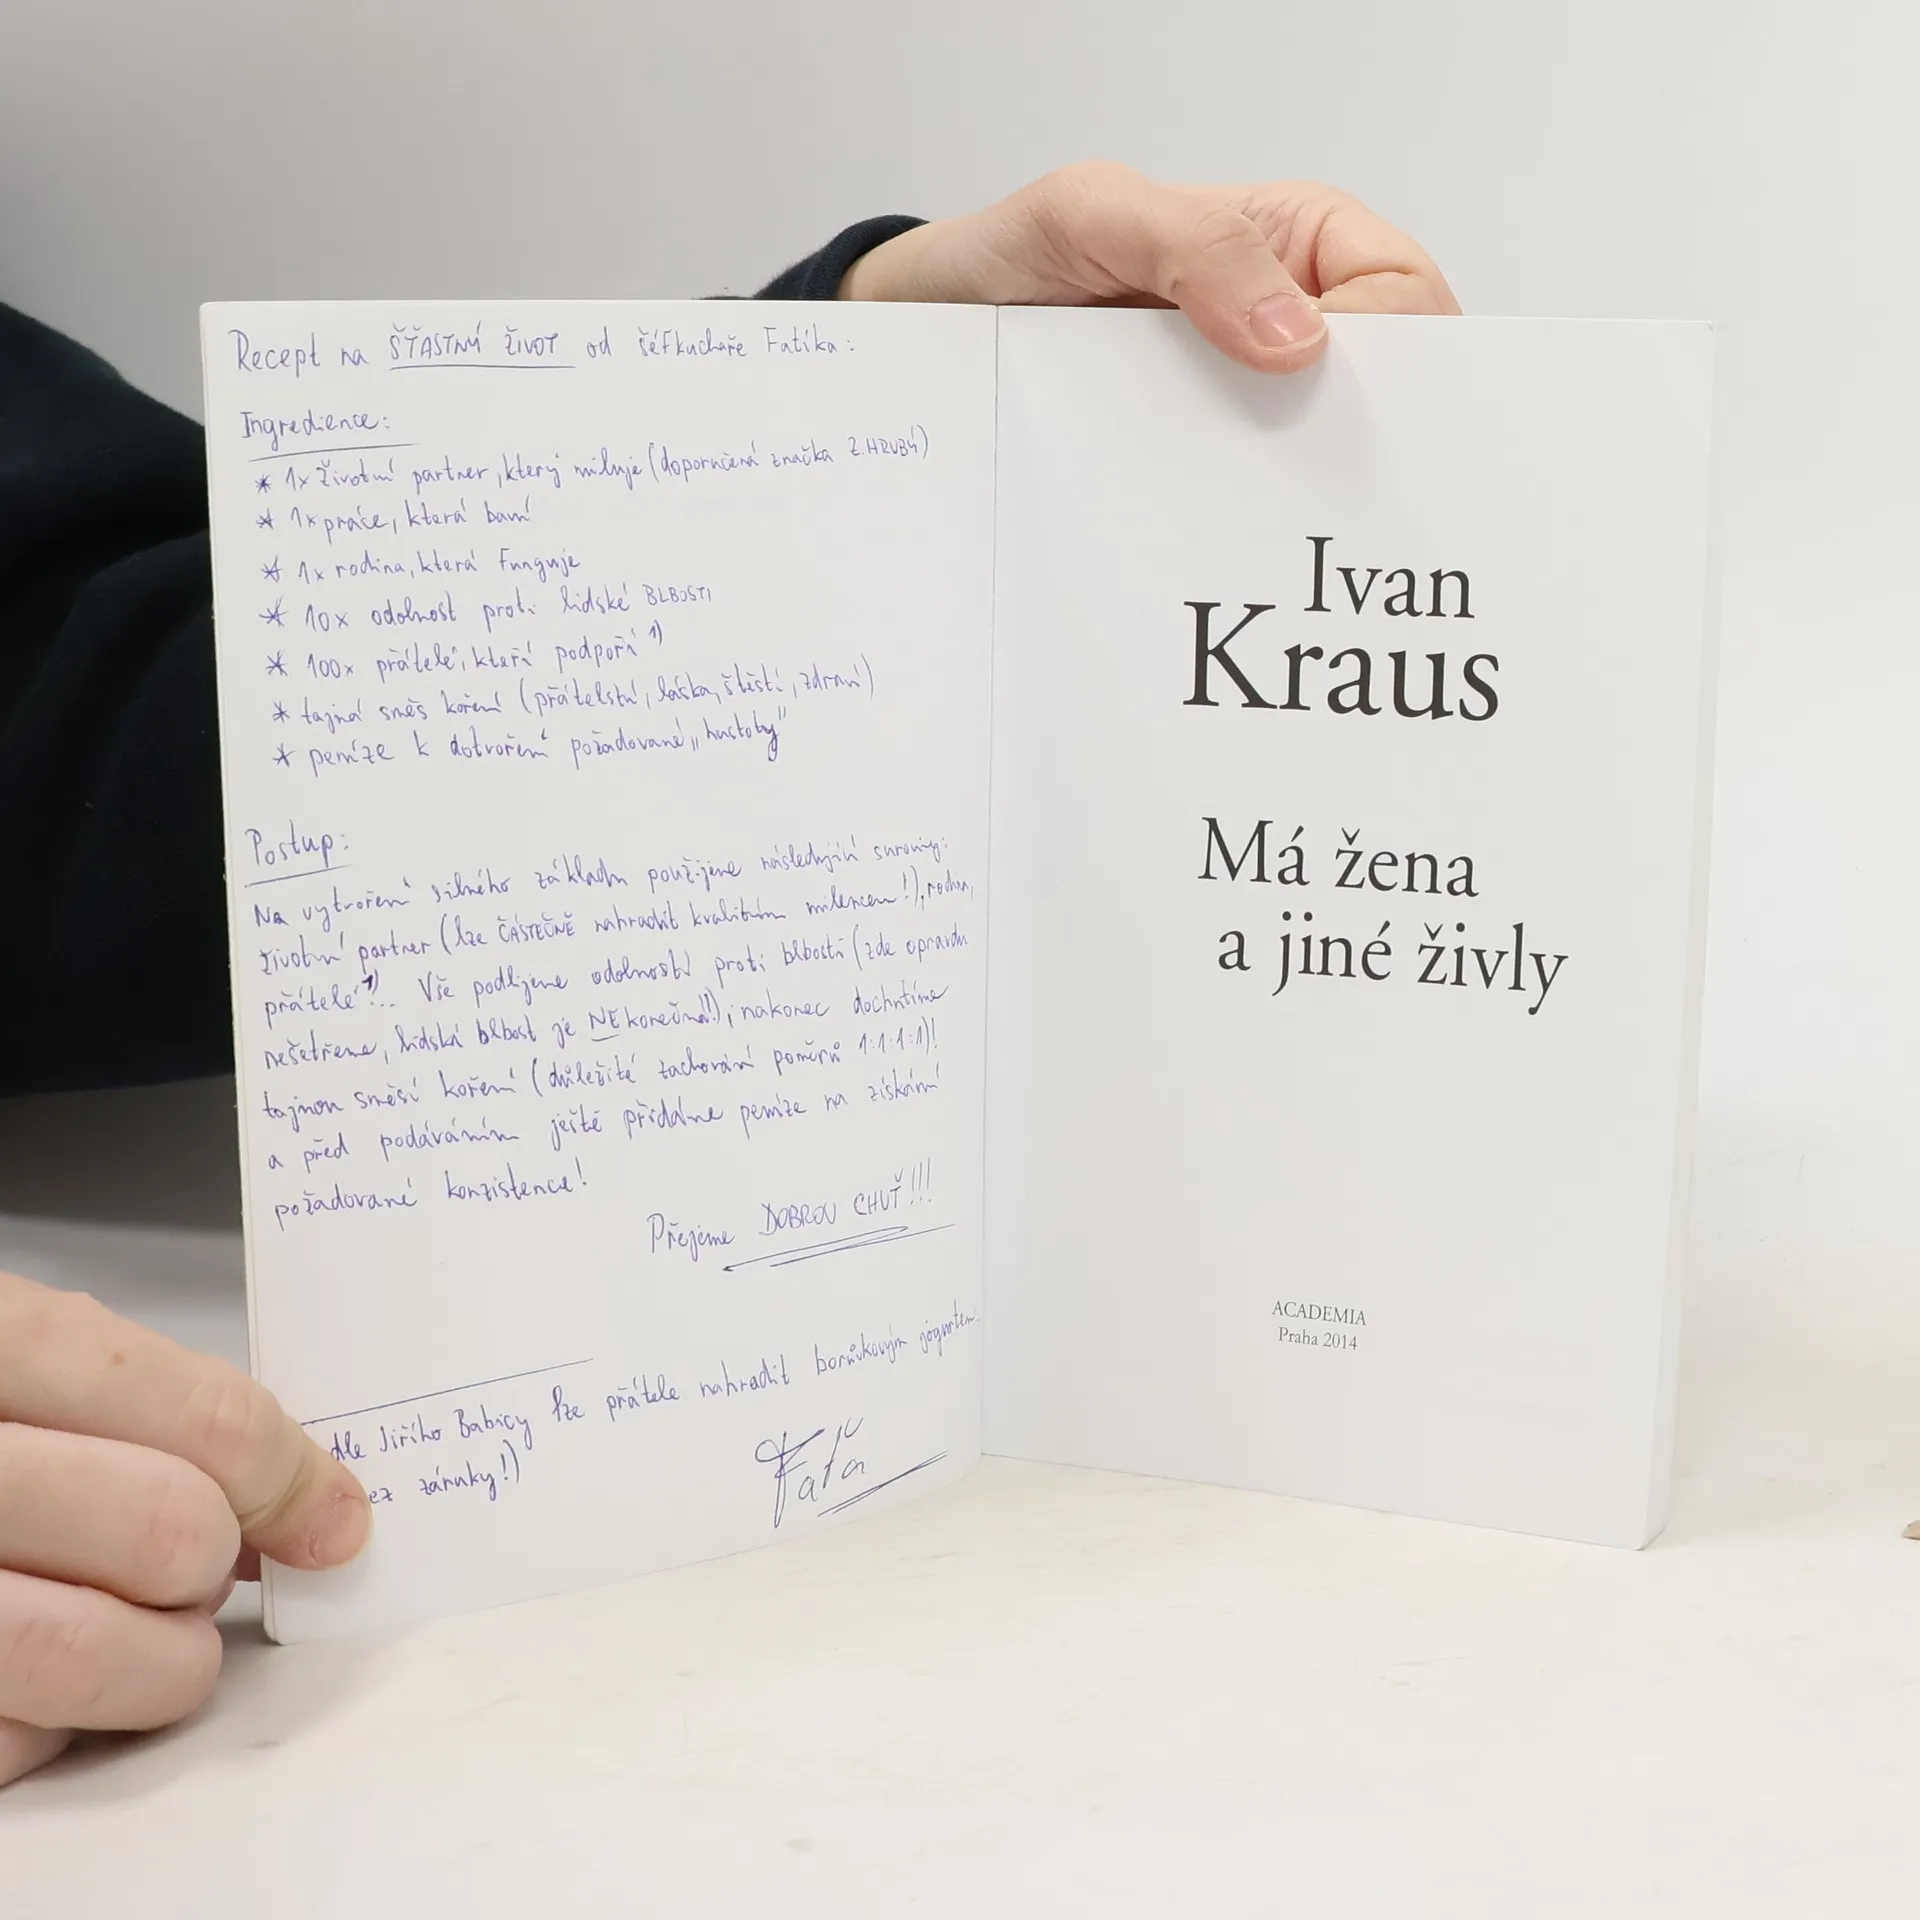 Recept na ŠŤASTNÝ ŽIVOT od šéfkuchaře Fatíka:
Ingredience:
* 1x životní partner, který miluje (doporučená značka Z. HRUBÝ)
* 1x práce, která baví
* 1x rodina, která funguje
* 10x odolnost proti lidské BLBOSTI
* 100x přátelé, kteří podpoří 1)
* tajná směs koření (přátelství, láska, štěstí, zdraví)
* peníze k dotvoření požadované "hustoty"
Postup:
Na vytvoření silného základu použijeme následující suroviny:
životní partner (lze ČÁSTEČNĚ nahradit kvalitním milencem!), rodina,
přátelé 1)... Vše podlijeme odolností proti blbosti (zde opravdu
nešetřeme, lidská blbost je NEkonečná!); nakonec dochutíme
tajnou směsí koření (důležité zachování poměrů 1:1:1:1)!
a před podáváním ještě přidáme peníze na získání
požadované konzistence!
Přejeme DOBROU CHUŤ!!!
dle Jiřího Babicy lze přátele nahradit borůvkovým jogurtem
ez záruky!)
Ivan
Kraus
Má žena
a jiné živly
ACADEMIA
Praha 2014